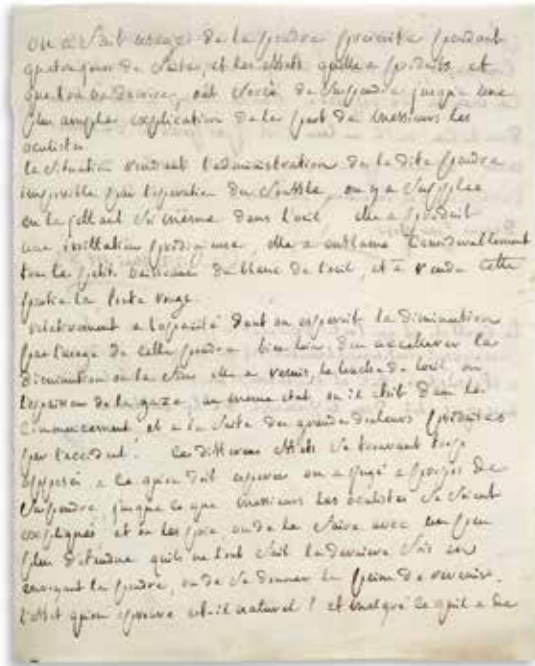 on a fait usage de la poudre prescrite pendant
quatre jours de suite, et les effets qu'elle a produits, et
que l'on va décrire, ont forcé de suspendre jusqu'a une
plus ample explication de la part de messieurs les
oculistes
la situation rendant l'administration de la dite poudre
impossible par l'operation du souffle, on y a supplée
en la jettant soi meme dans l'oeil elle a produit
une irritation prodigieuse, elle a enflammé considerablement
tous les petits vaisseaux du blanc de l'oeil, et a rendu cette
partie la forte rouge.
relativement a l'opacité dont on esperoit la diminution
par l'usage de cette poudre bien loin d'en accelerer la
diminution elle a remis, la tache de l'oeil, ou
l'epaisseur de la gaze au meme etat ou il etoit dans le
commencement et a la suite des grandes douleurs produites
par l'accident. ces differens effets se trouvant trop
opposés a ce qu'on doit esperer on a jugé a propos de
suspendre, jusqua ce que messieurs les oculistes se soient
expliqués, et on les prie de le faire avec un peu
plus d'etendue quils ne l'ont fait la derniere fois en
envoyant la poudre, ou de se donner la peine de revenir.
l'effet qu'on eprouve est-il naturel? et malgré ce qu'il a de